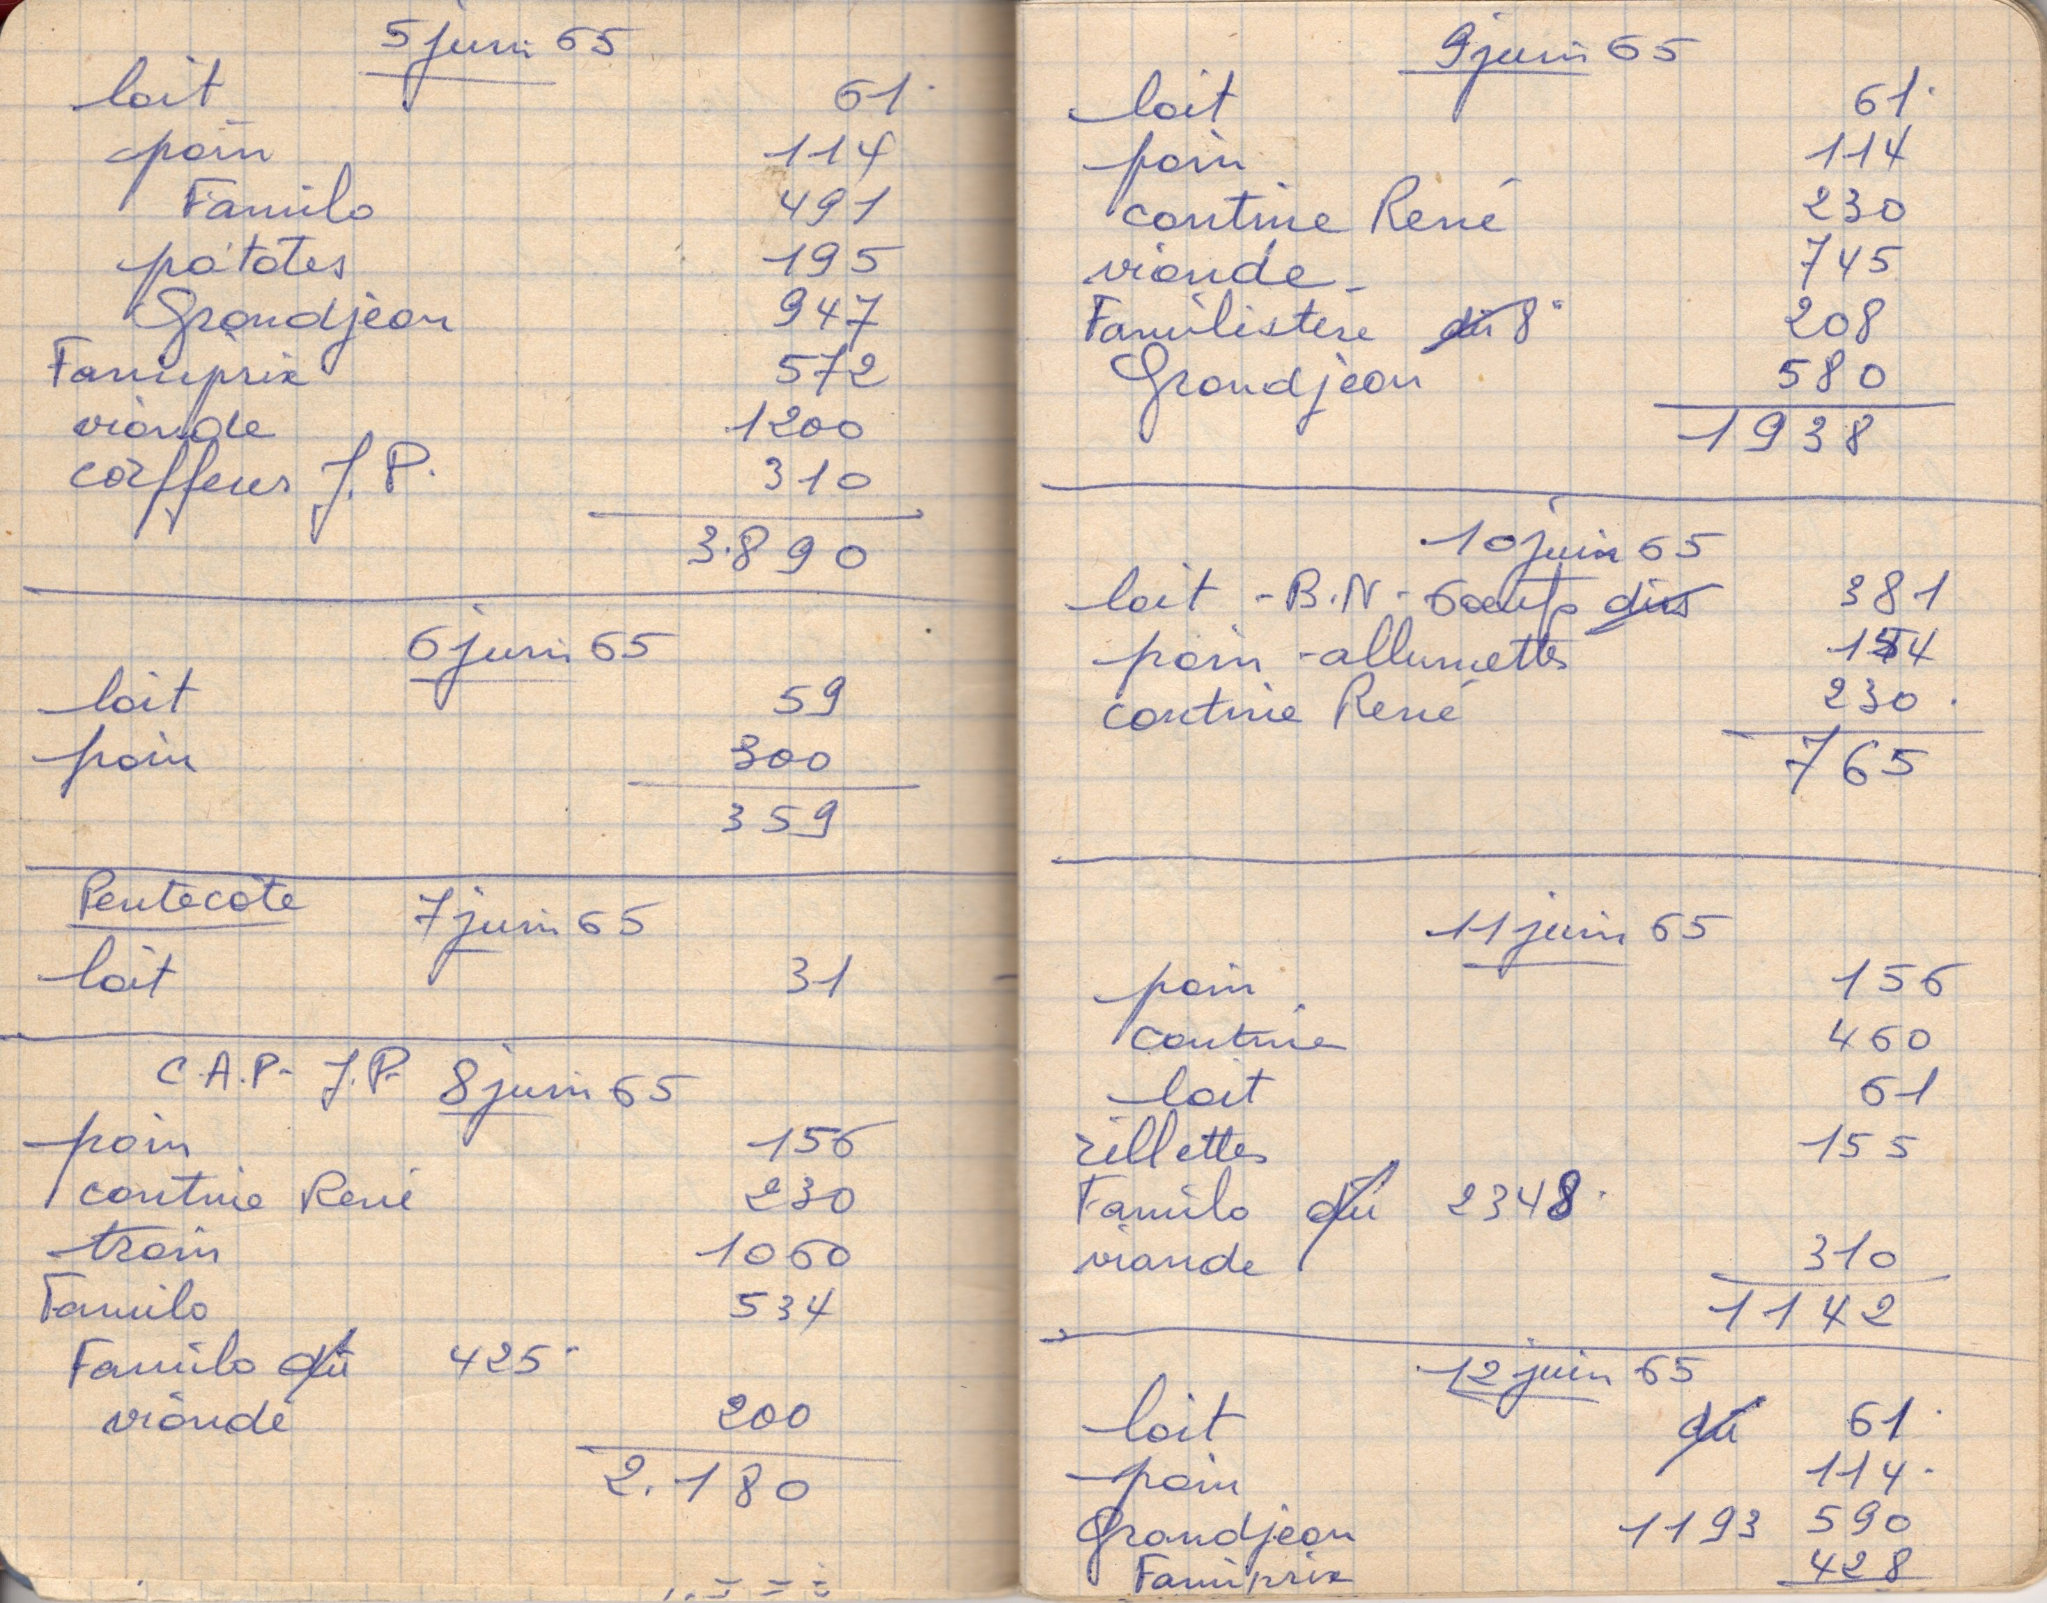 5 juin 65
lait 61
pain 114
Familo 491
patates 195
Grandjean 947
Famiprix 572
viande 1200
coiffeur J.P. 310
3.890
6 juin 65
lait 59
pain 300
359
Pentecôte 7 juin 65
lait 31
C.A.P. J.P. 8 juin 65
pain 156
cantine René 230
train 1060
Familo 534
Familo dû 425
viande 200
2.180
9 juin 65
lait 61
pain 114
cantine René 230
viande 745
Familistere du 8 208
Grandjean 580
1938
10 juin 65
lait - B.N - 6 oeufs dus 381
pain - allumettes 154
cantine René 230
765
11 juin 65
pain 156
cantine 460
lait 61
rillettes 155
Familo dû 2348
viande 310
1142
12 juin 65
lait dû 61
pain 114
Grandjean 1193 590
Famiprix 428